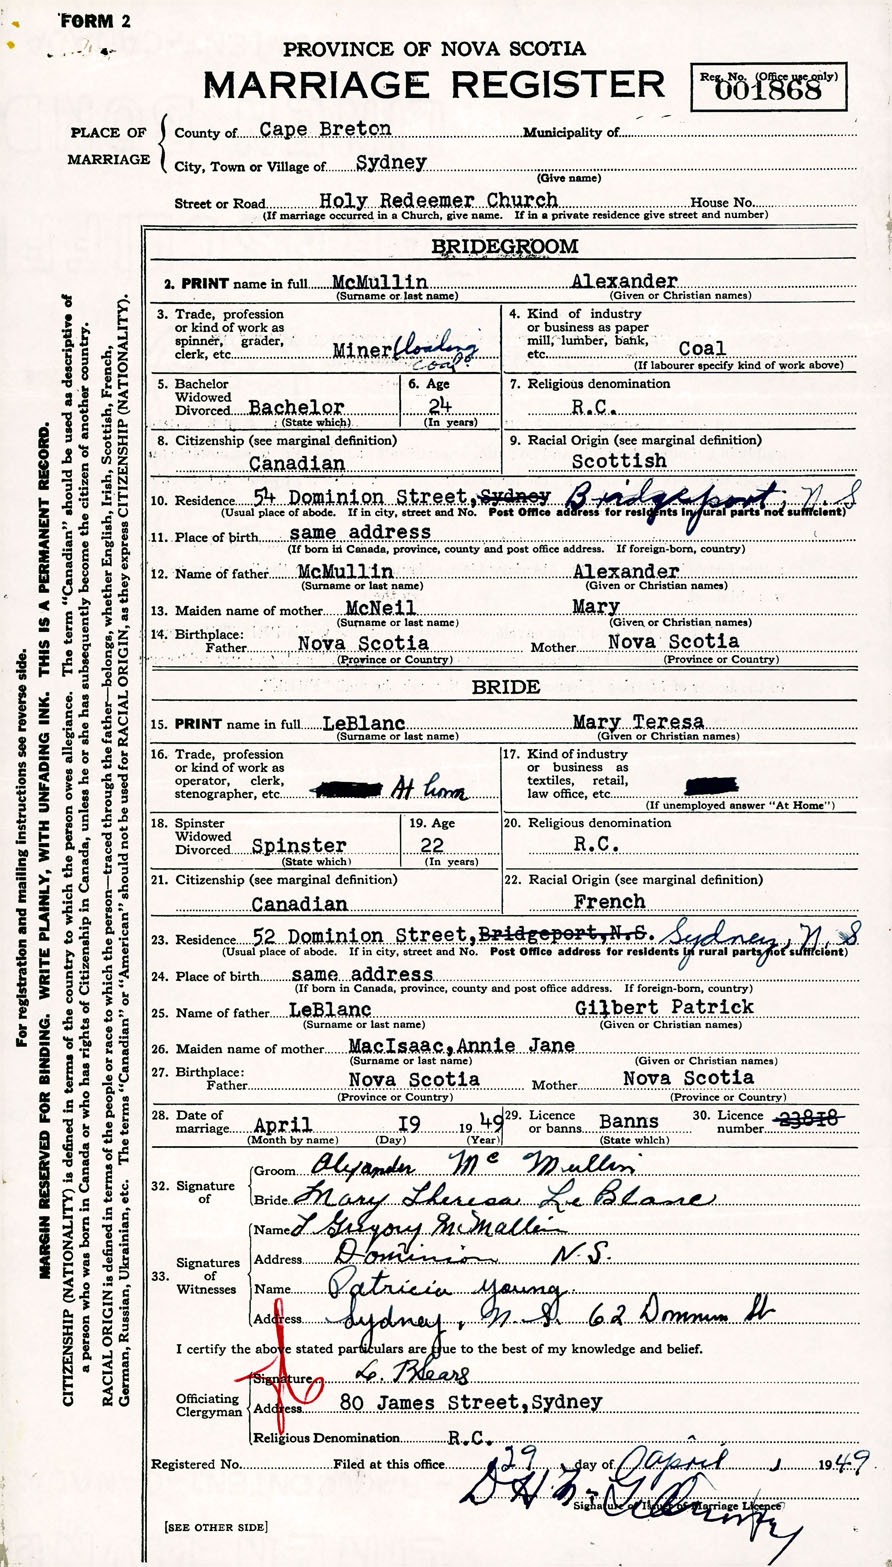 FORM 2
PROVINCE OF NOVA SCOTIA
MARRIAGE REGISTER
Reg. No. (Office use only)
001868
PLACE OF MARRIAGE
County of Cape Breton Municipality of
City, Town or Village of Sydney
(Give name)
Street or Road Holy Redeemer Church House No.
(If marriage occurred in a Church, give name. If in a private residence give street and number)
BRIDEGROOM
2. PRINT name in full McMullin Alexander
(Surname or last name) (Given or Christian names)
3. Trade, profession or kind of work as spinner, grader, clerk, etc. Miner (loading coal)
4. Kind of industry or business as paper mill, lumber, bank, etc. Coal
(If labourer specify kind of work above)
5. Bachelor Widowed Divorced Bachelor
(State which)
6. Age 24
(In years)
7. Religious denomination
R.C.
8. Citizenship (see marginal definition)
Canadian
9. Racial Origin (see marginal definition)
Scottish
10. Residence 54 Dominion Street, Sydney Bridgeport, N.S
(Usual place of abode. If in city, street and No. Post Office address for residents in rural parts not sufficient)
11. Place of birth same address
(If born in Canada, province, county and post office address. If foreign-born, country)
12. Name of father McMullin Alexander
(Surname or last name) (Given or Christian names)
13. Maiden name of mother McNeil Mary
(Surname or last name) (Given or Christian names)
14. Birthplace:
Father Nova Scotia Mother Nova Scotia
(Province or Country) (Province or Country)
BRIDE
15. PRINT name in full LeBlanc Mary Teresa
(Surname or last name) (Given or Christian names)
16. Trade, profession or kind of work as operator, clerk, stenographer, etc. At home
17. Kind of industry or business as textiles, retail, law office, etc.
(If unemployed answer "At Home")
18. Spinster Widowed Divorced Spinster
(State which)
19. Age
22
(In years)
20. Religious denomination
R.C.
21. Citizenship (see marginal definition)
Canadian
22. Racial Origin (see marginal definition)
French
23. Residence 52 Dominion Street, Bridgeport, N.S. Sydney, N.S
(Usual place of abode. If in city, street and No. Post Office address for residents in rural parts not sufficient)
24. Place of birth same address
(If born in Canada, province, county and post office address. If foreign-born, country)
25. Name of father LeBlanc Gilbert Patrick
(Surname or last name) (Given or Christian names)
26. Maiden name of mother MacIsaac, Annie Jane
(Surname or last name) (Given or Christian names)
27. Birthplace:
Father Nova Scotia Mother Nova Scotia
(Province or Country) (Province or Country)
28. Date of marriage April 19 1949
(Month by name) (Day) (Year)
29. Licence or banns Banns
(State which)
30. Licence number 23818
32. Signature of
Groom Alexander Mc Mullin
Bride Mary Theresa Le Blanc
33. Signatures of Witnesses
Name Gregory McMullin
Address Dominion N.S.
Name Patricia Young
Address Sydney, N.S. 62 Dominion St
I certify the above stated particulars are true to the best of my knowledge and belief.
Officiating Clergyman
Signature
Address 80 James Street, Sydney
Religious Denomination R.C.
Registered No. Filed at this office 29 day of April 1949
D H Mc
Signature of Issuer of Marriage Licence
[SEE OTHER SIDE]
For registration and mailing instructions see reverse side.
MARGIN RESERVED FOR BINDING. WRITE PLAINLY, WITH UNFADING INK. THIS IS A PERMANENT RECORD.
CITIZENSHIP (NATIONALITY) is defined in terms of the country to which the person owes allegiance. The term "Canadian" should be used as descriptive of
a person who was born in Canada or who has rights of Citizenship in Canada, unless he or she has subsequently become the citizen of another country.
RACIAL ORIGIN is defined in terms of the people or race to which the person—traced through the father—belongs, whether English, Irish, Scottish, French,
German, Russian, Ukrainian, etc. The terms "Canadian" or "American" should not be used for RACIAL ORIGIN, as they express CITIZENSHIP (NATIONALITY).